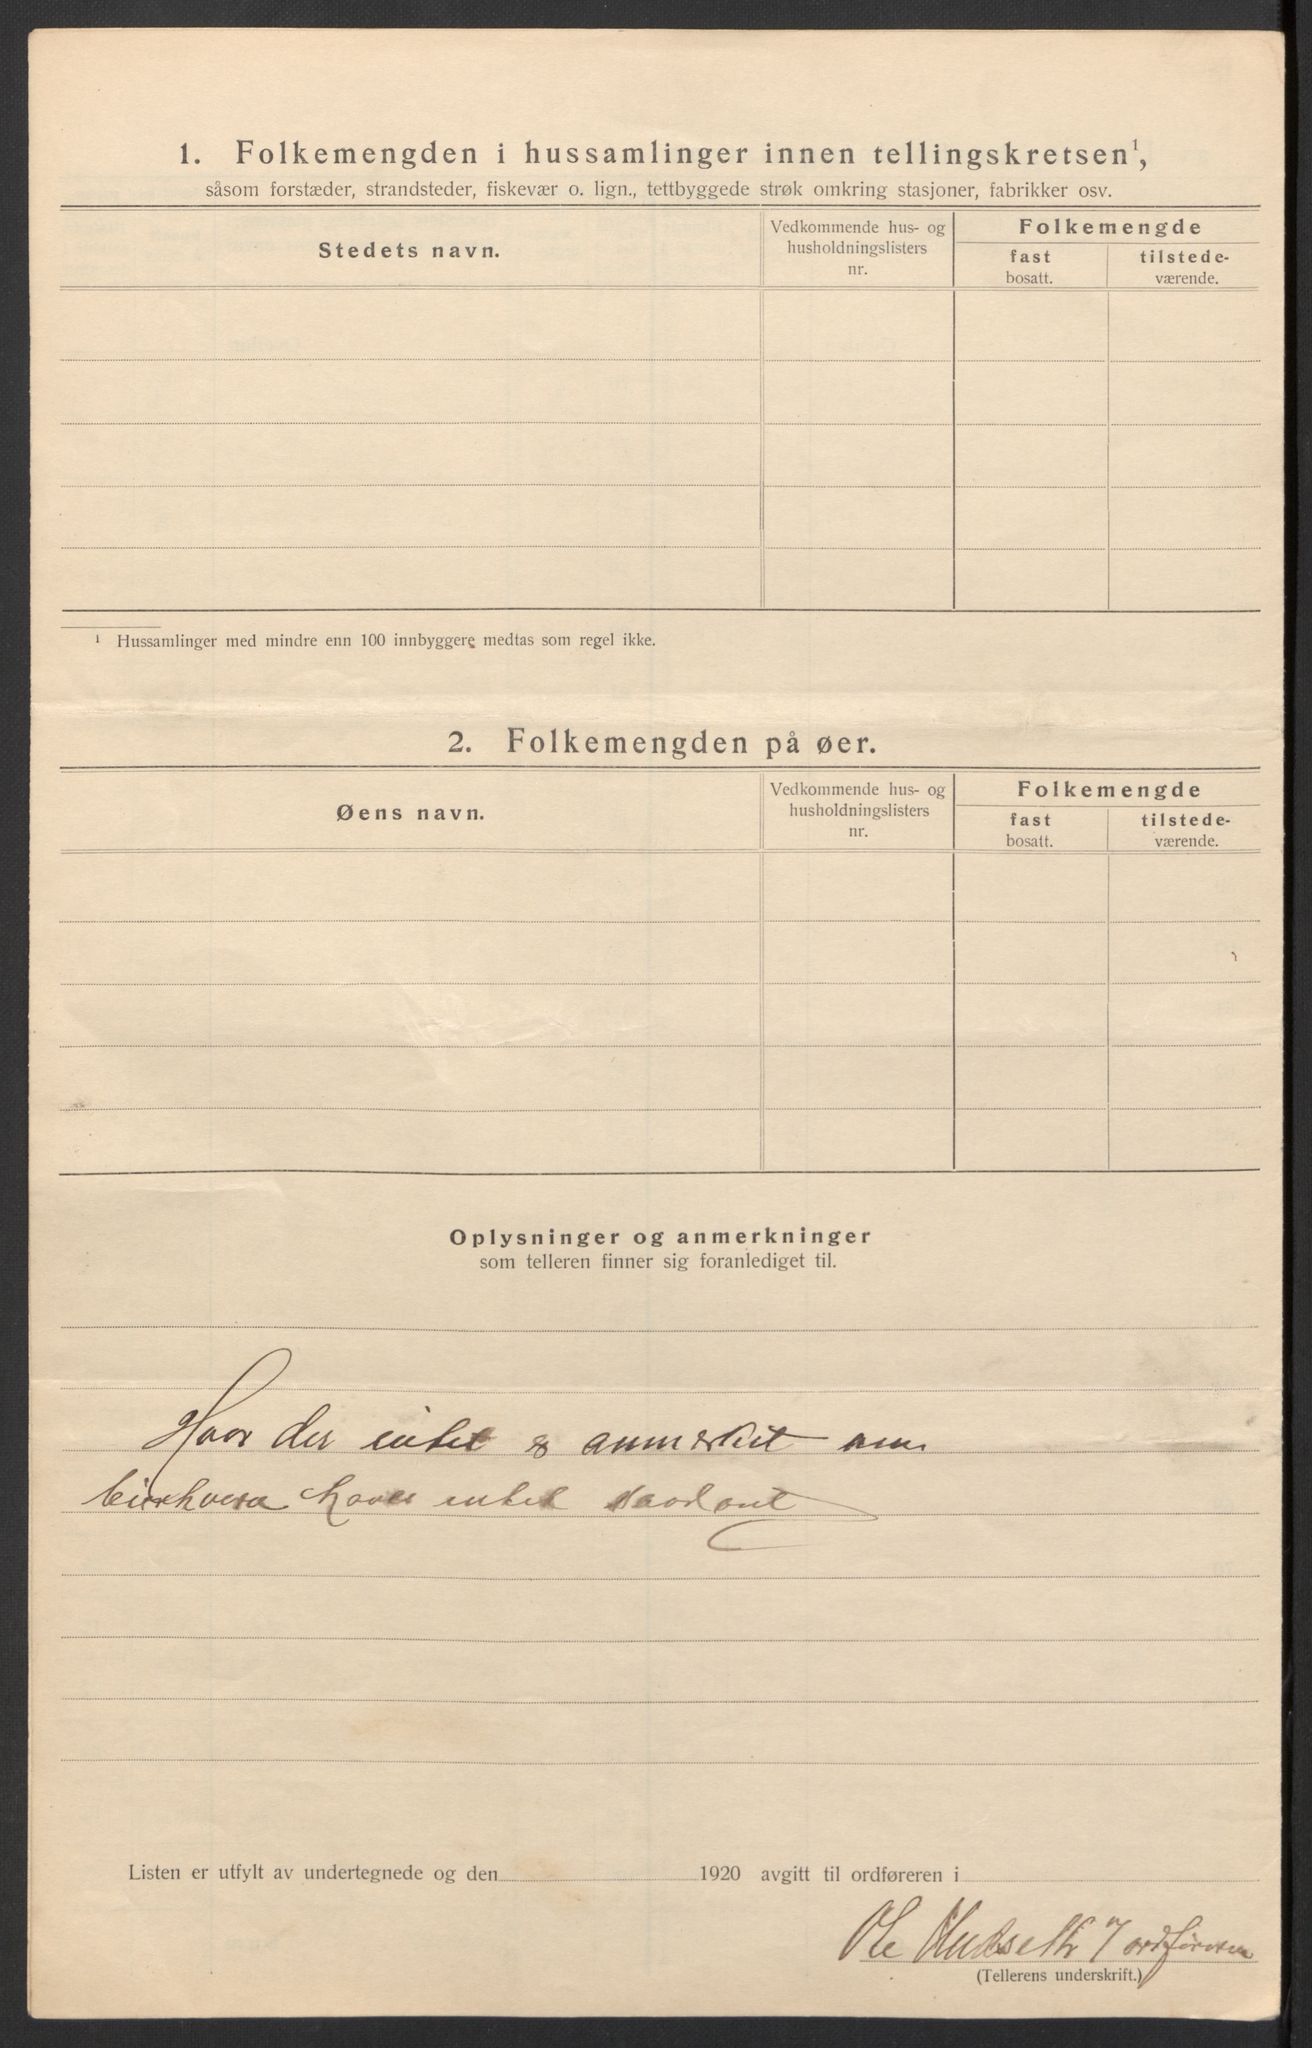 1. Folkemengden i hussamlinger innen tellingskretsen¹,
såsom forstæder, strandsteder, fiskevær o. lign., tettbyggede strøk omkring stasjoner, fabrikker osv.
Stedets navn.
Vedkommende hus- og
husholdningslisters
nr.
Folkemengde
fast
bosatt.
tilstede-
værende.
¹ Hussamlinger med mindre enn 100 innbyggere medtas som regel ikke.
2. Folkemengden på øer.
Øens navn.
Vedkommende hus- og
husholdningslisters
nr.
Folkemengde
fast
bosatt.
tilstede-
værende.
Oplysninger og anmerkninger
som telleren finner sig foranlediget til.
Hvor der intet er anmerket om
haves intet saadant
Listen er utfylt av undertegnede og den 1920 avgitt til ordføreren i
Ole ordføreren
(Tellerens underskrift.)